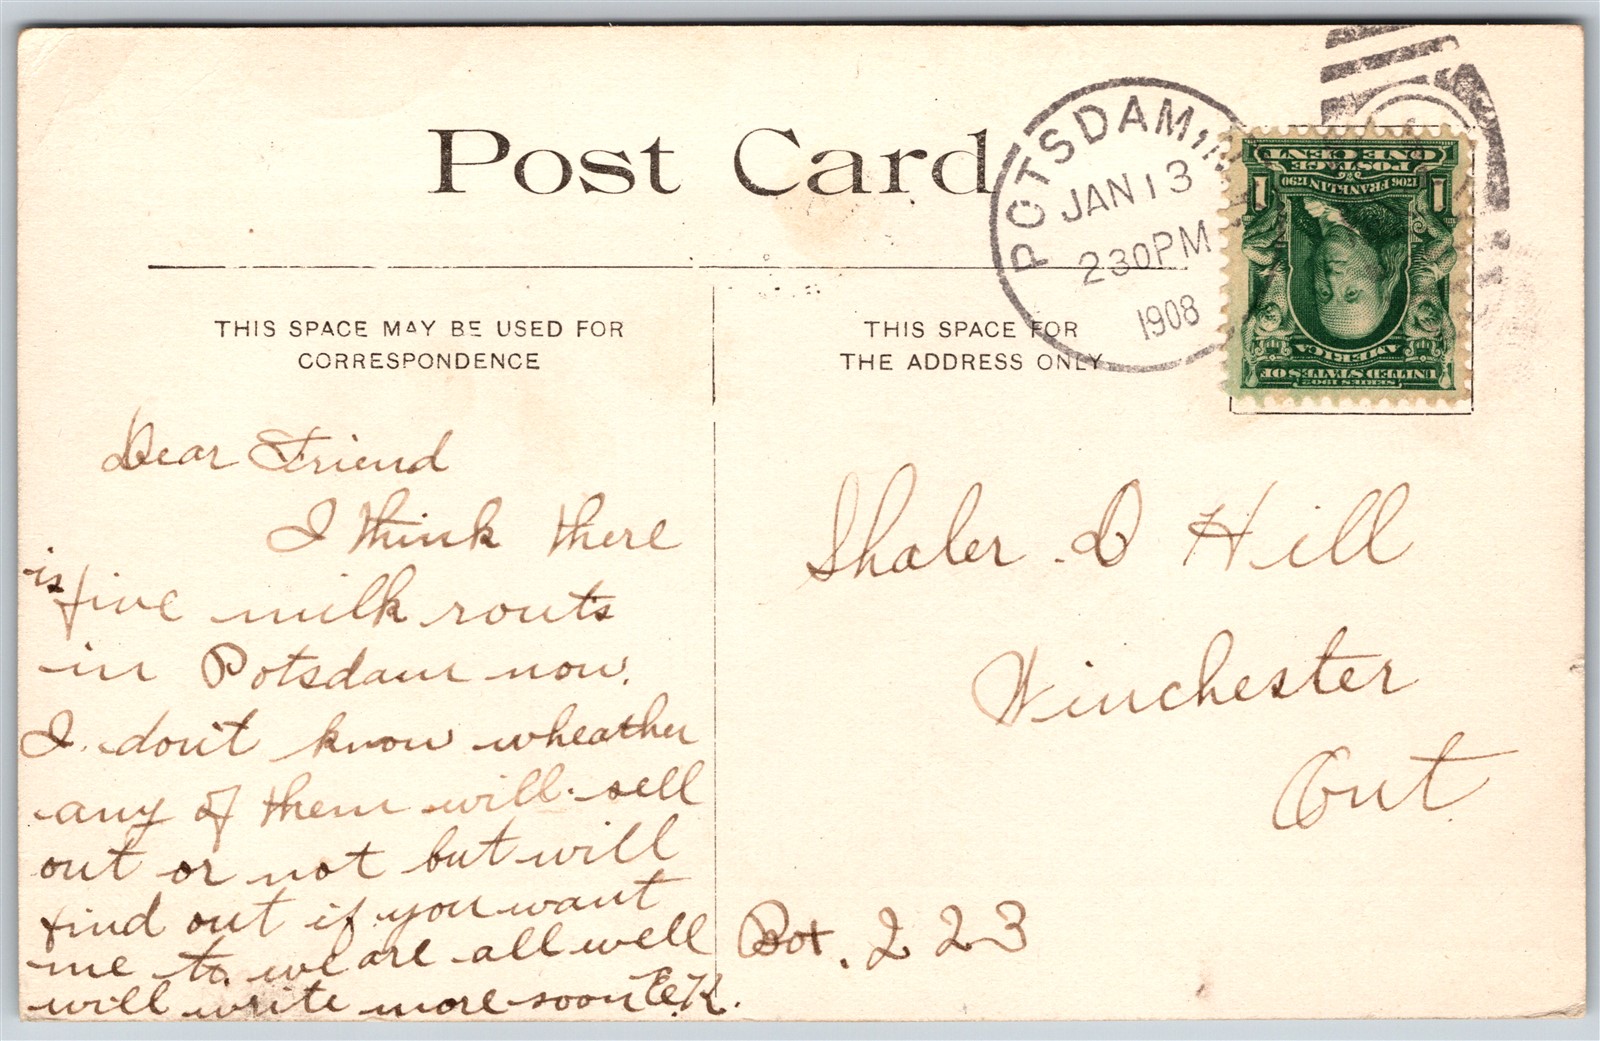 Post Card
POTSDAM, N.Y.
JAN 13
230PM
1908
POSTAGE
ONE CENT
1706 FRANKLIN 1790
1 1
SERIES 1902
UNITED STATES OF
AMERICA
THIS SPACE MAY BE USED FOR
CORRESPONDENCE
THIS SPACE FOR
THE ADDRESS ONLY
Dear Friend
I think there
is five milk routs
in Potsdam now.
I don't know wheather
any of them will sell
out or not but will
find out if you want
me to. we are all well
will write more soon E.K.
Shaler D Hill
Winchester
Cnt
Box. 223